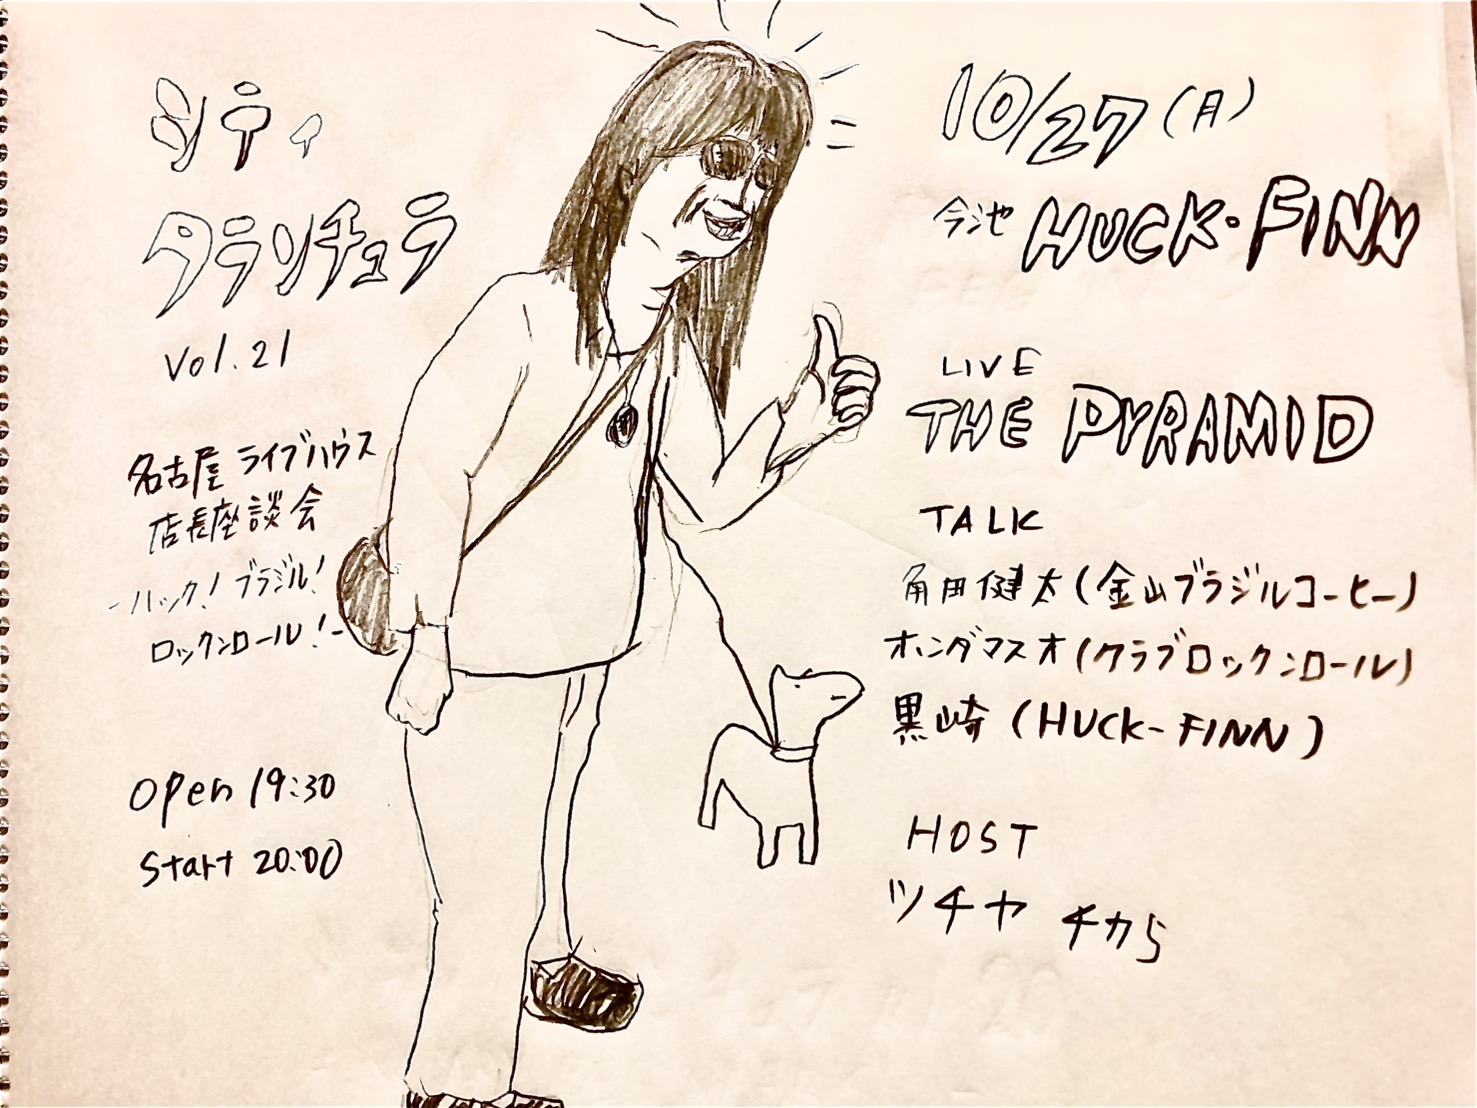 シティ
タランチュラ
Vol.21
名古屋 ライブハウス
店長座談会
-ハック! ブラジル!
ロックンロール!-
open 19:30
Start 20:00
10/27(月)
今池 HUCK・FINN
LIVE
THE PYRAMID
TALK
角田健太(金山ブラジルコーヒー)
ホンダマスオ(クラブロックンロール)
黒崎(HUCK-FINN)
HOST
ツチヤ チカら